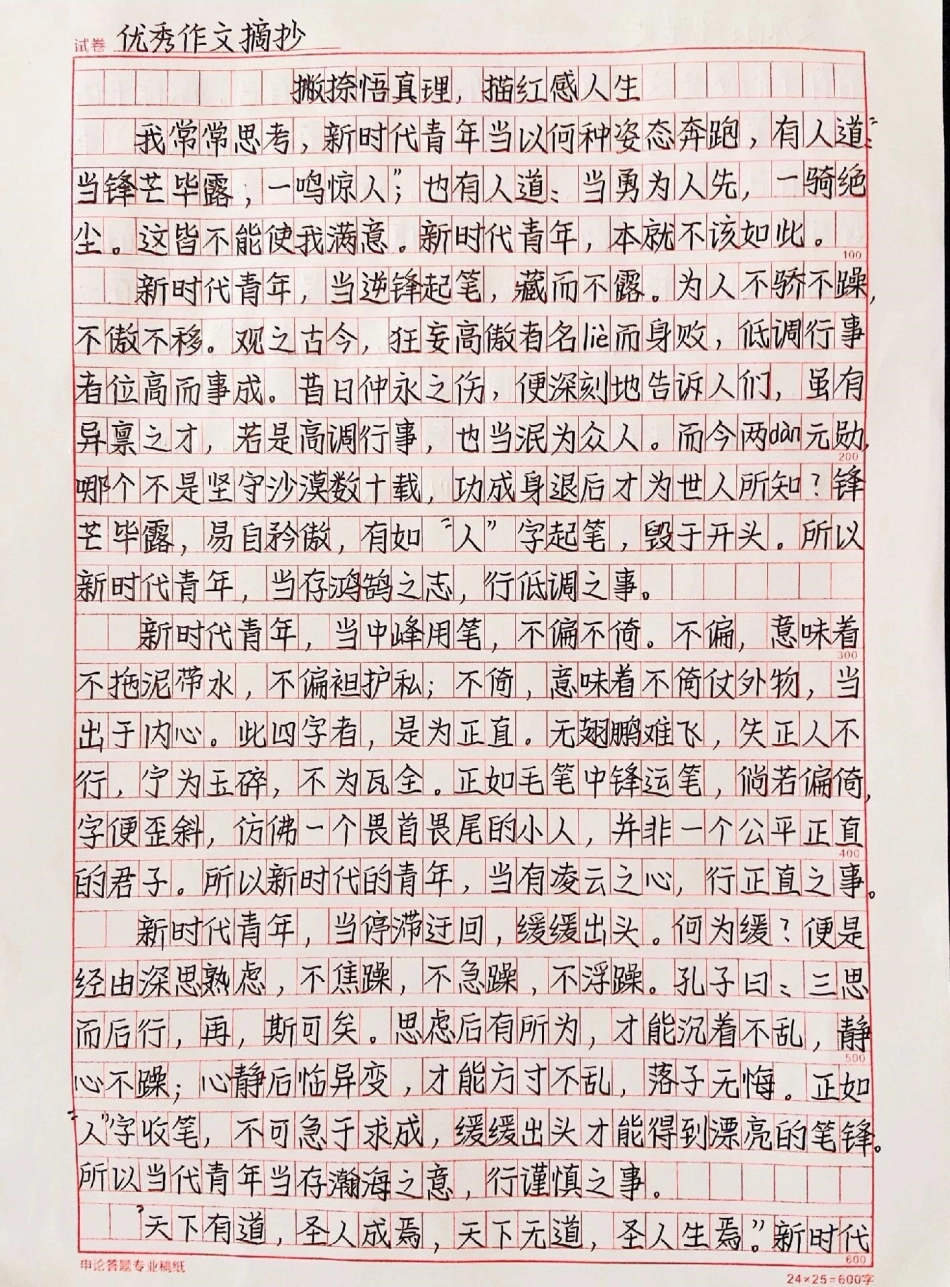 试卷 优秀作文摘抄
撇捺悟真理，描红感人生
我常常思考，新时代青年当以何种姿态奔跑，有人道：“
当锋芒毕露，一鸣惊人”；也有人道：当勇为人先，一骑绝
尘。这皆不能使我满意。新时代青年，本就不该如此。
100
新时代青年，当逆锋起笔，藏而不露。为人不骄不躁，
不傲不移。观之古今，狂妄高傲者名liè而身败，低调行事
者位高而事成。昔日仲永之伤，便深刻地告诉人们，虽有
异禀之才，若是高调行事，也当泯为众人。而今两dàn元勋，
200
哪个不是坚守沙漠数十载，功成身退后才为世人所知？锋
芒毕露，易自矜傲，有如“人”字起笔，毁于开头。所以
新时代青年，当存鸿鹄之志，行低调之事。
新时代青年，当中峰用笔，不偏不倚。不偏，意味着
300
不拖泥带水，不偏袒护私；不倚，意味着不倚仗外物，当
出于内心。此四字者，是为正直。无翅鹏难飞，失正人不
行，宁为玉碎，不为瓦全。正如毛笔中锋运笔，倘若偏倚，
字便歪斜，仿佛一个畏首畏尾的小人，并非一个公平正直
400
的君子。所以新时代的青年，当有凌云之心，行正直之事。
新时代青年，当停滞迂回，缓缓出头。何为缓？便是
经由深思熟虑，不焦躁，不急躁，不浮躁。孔子曰：三思
而后行，再，斯可矣。思虑后有所为，才能沉着不乱，静
500
心不躁；心静后临异变，才能方寸不乱，落子无悔。正如
“人”字收笔，不可急于求成，缓缓出头才能得到漂亮的笔锋。
所以当代青年当存瀚海之意，行谨慎之事。
“天下有道，圣人成焉，天下无道，圣人生焉。”新时代
600
申论答题专业稿纸 24×25=600字